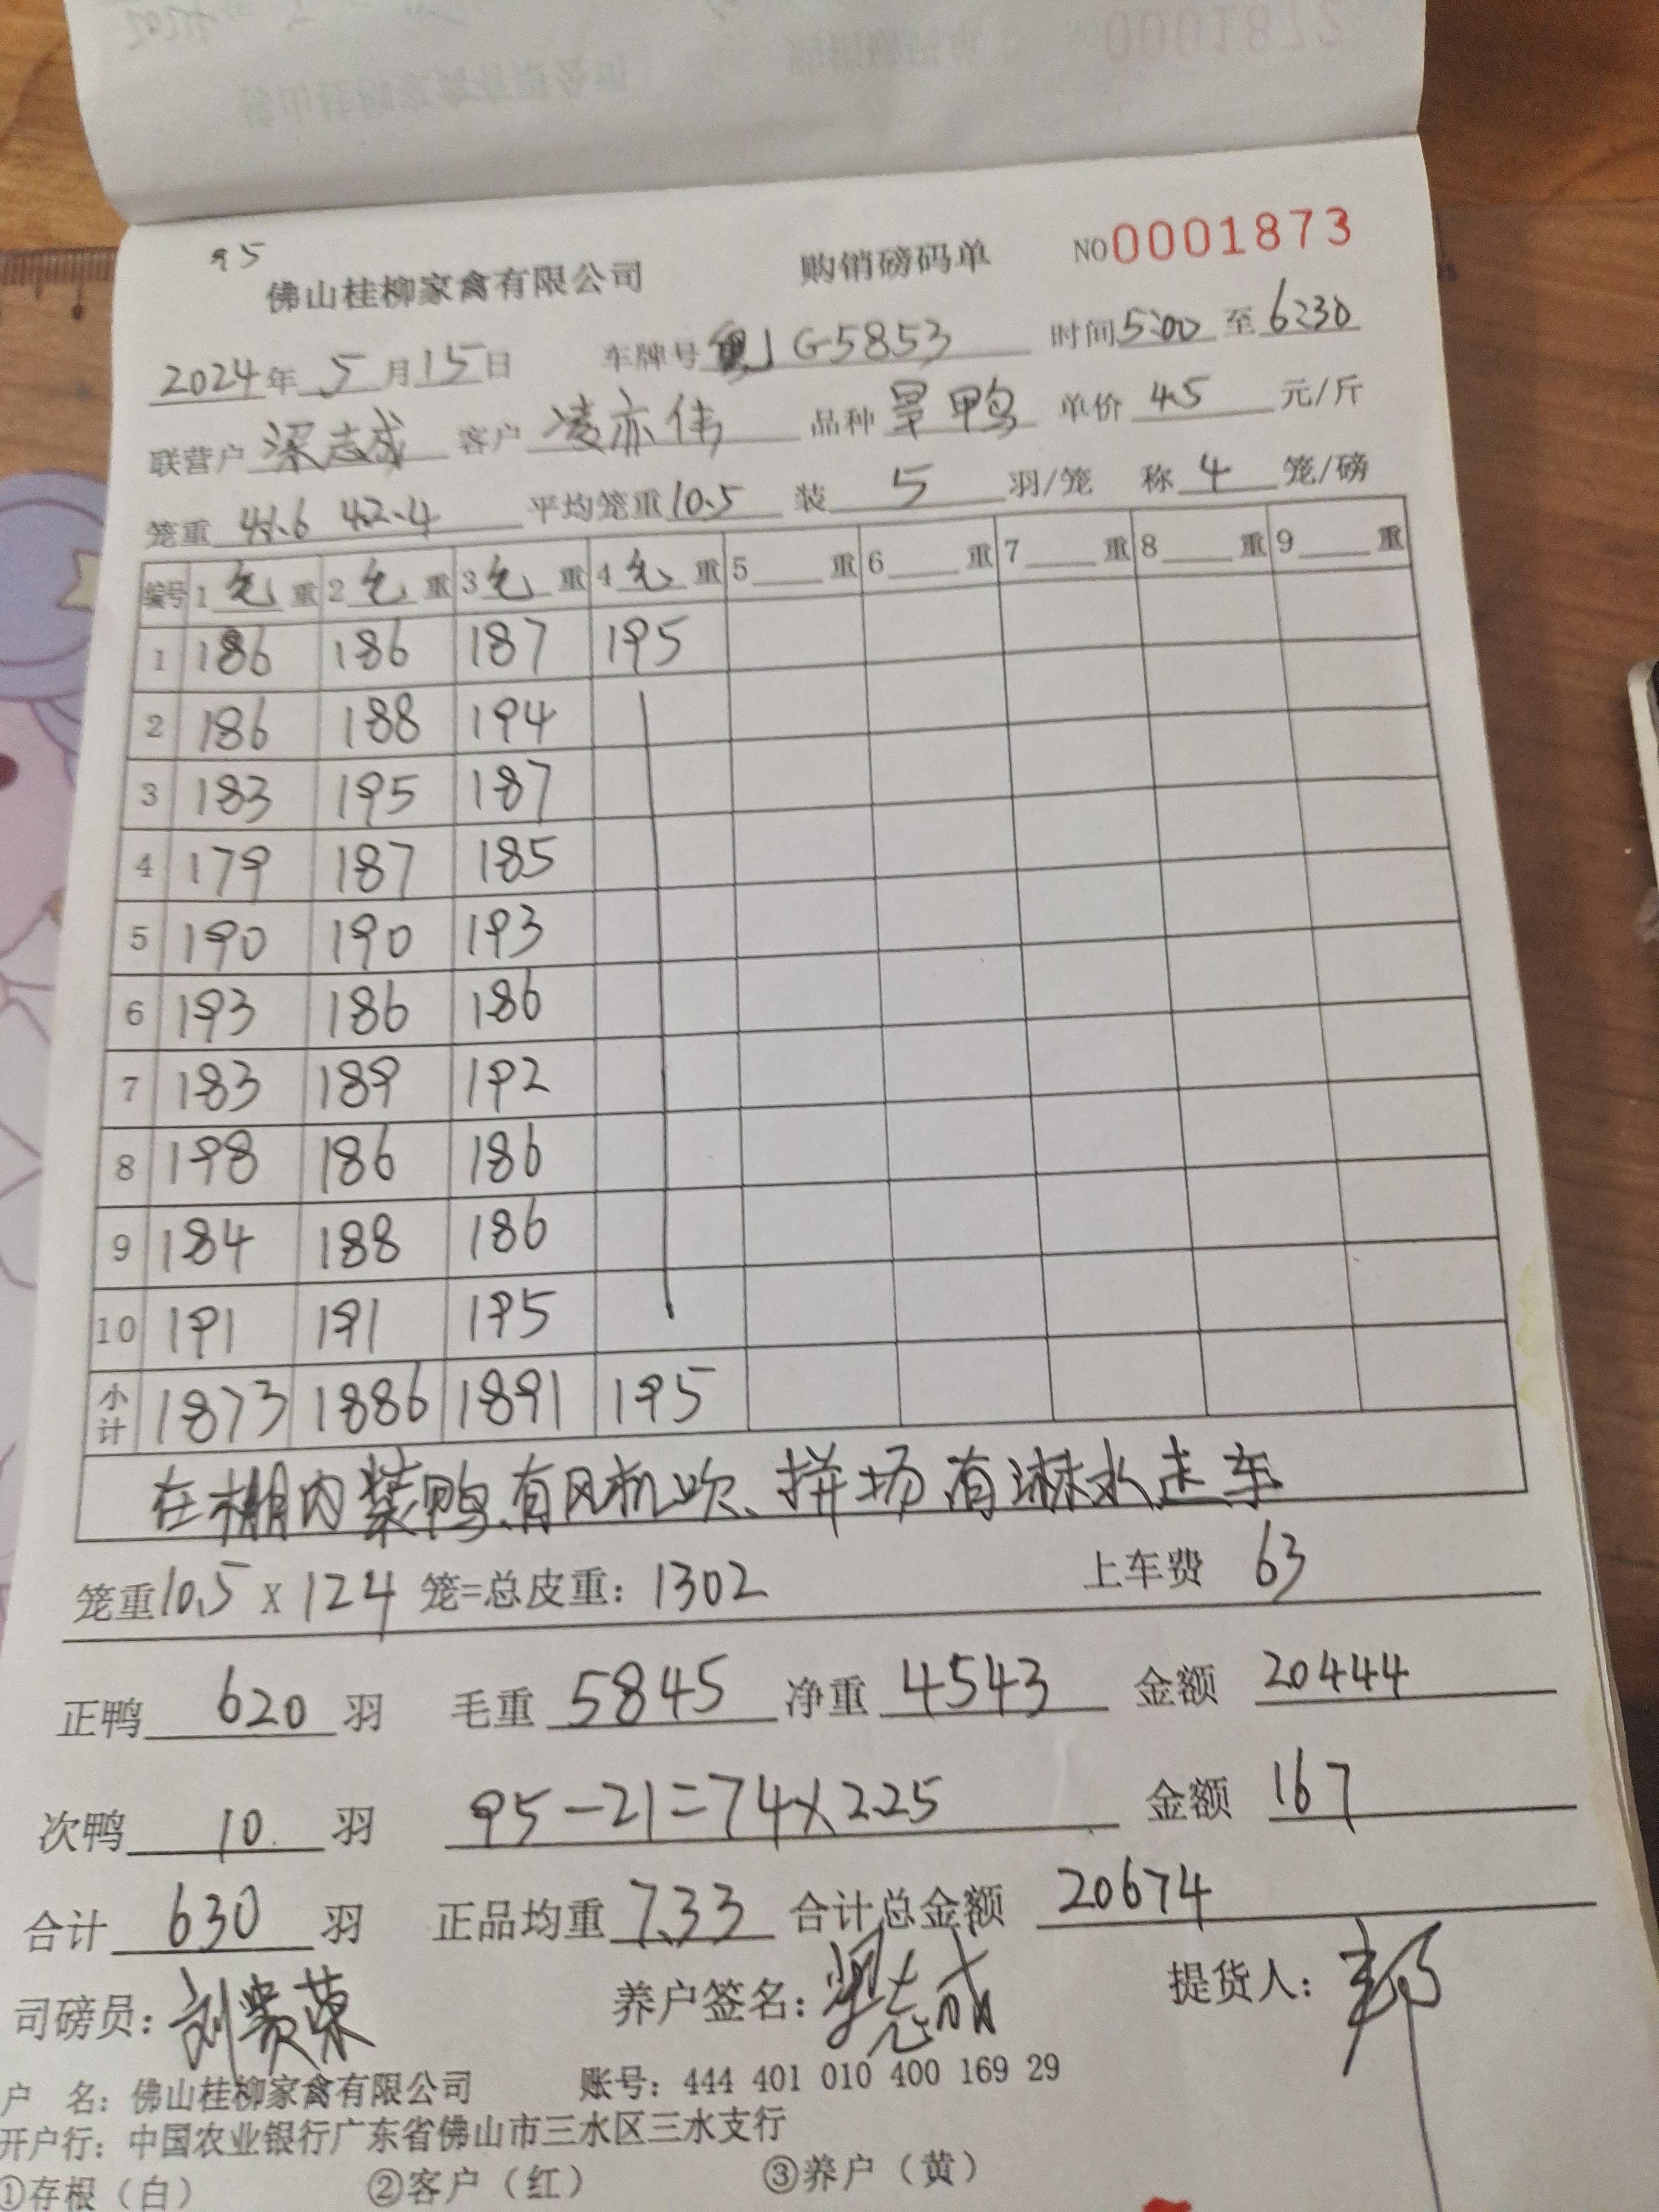 95
佛山桂柳家禽有限公司 购销磅码单 NO 0001873
2024年 5月15日 车牌号 粤J G5853 时间 5:00 至 6:30
联营户 梁志成 客户 凌亦伟 品种 旱鸭 单价 4.5 元/斤
笼重 41.6 42.4 平均笼重 10.5 装 5 羽/笼 称 4 笼/磅
编号 1 毛 重 2 毛 重 3 毛 重 4 毛 重 5 重 6 重 7 重 8 重 9 重
1 186 186 187 195
2 186 188 194
3 183 195 187
4 179 187 185
5 190 190 193
6 193 186 186
7 183 189 192
8 198 186 186
9 184 188 186
10 191 191 195
小计 1873 1886 1891 195
在棚内装鸭、有风机吹、拼场有淋水走车
笼重 10.5 x 124 笼=总皮重: 1302 上车费 63
正鸭 620 羽 毛重 5845 净重 4543 金额 20444
次鸭 10 羽 95-21=74×2.25 金额 167
合计 630 羽 正品均重 7.33 合计总金额 20674
司磅员: 刘贵荣 养户签名: 梁志成 提货人:
户 名: 佛山桂柳家禽有限公司 账号: 444 401 010 400 169 29
开户行: 中国农业银行广东省佛山市三水区三水支行
①存根（白） ②客户（红） ③养户（黄）